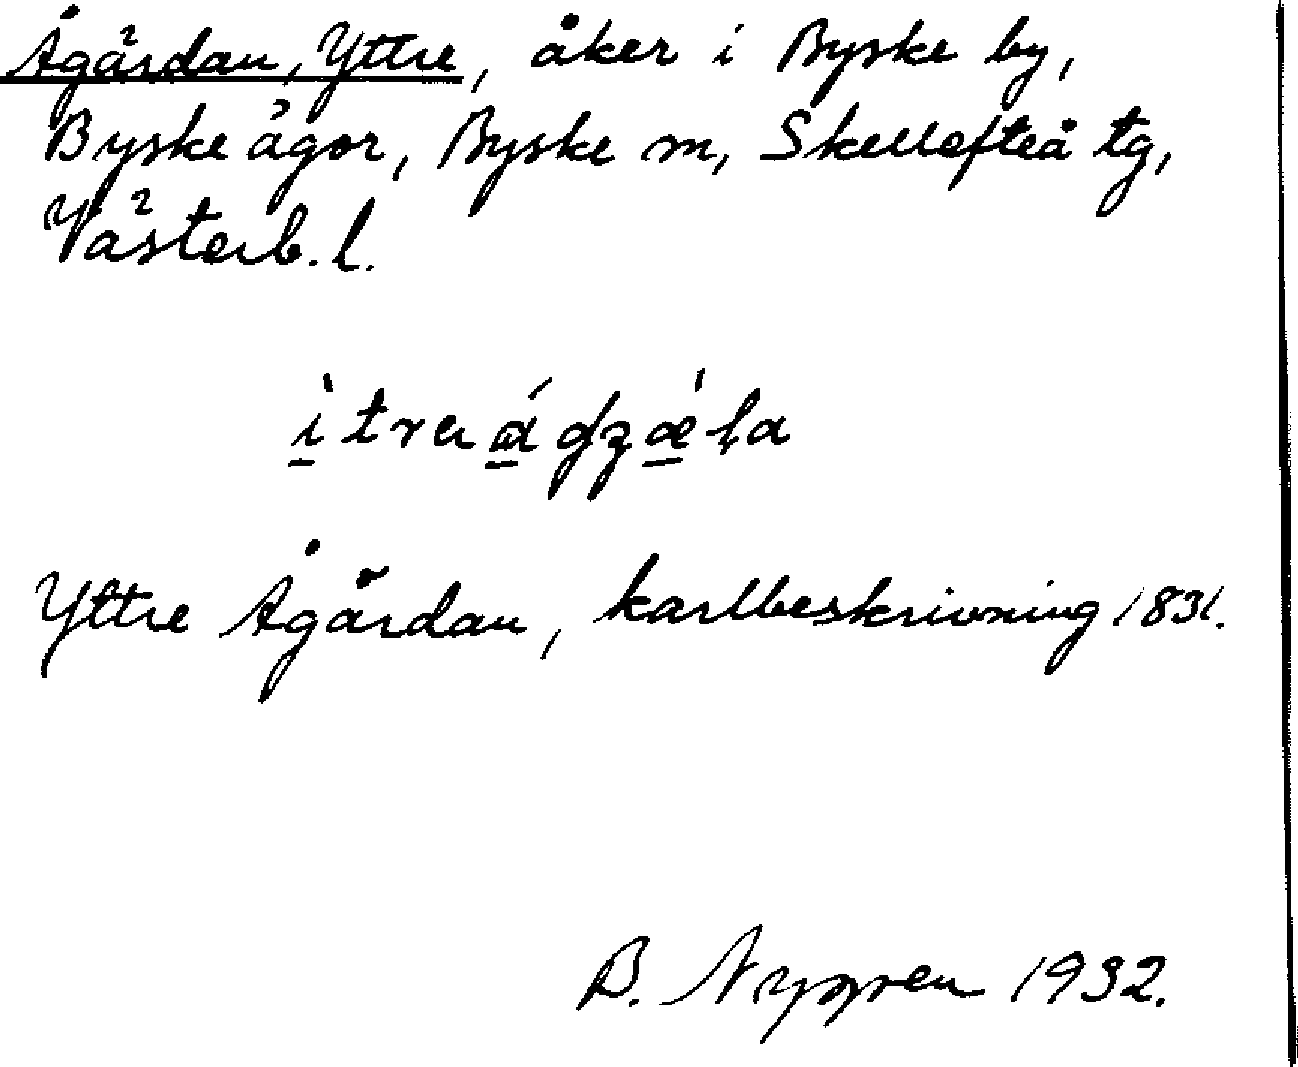 Ågärdan, Yttre, åker i Byske by,
Byske ägor, Byske m, Skellefteå tg,
Västerb. l.
Yttre Ågärdan, kartbeskrivning 1831.
B. Nygren 1932.